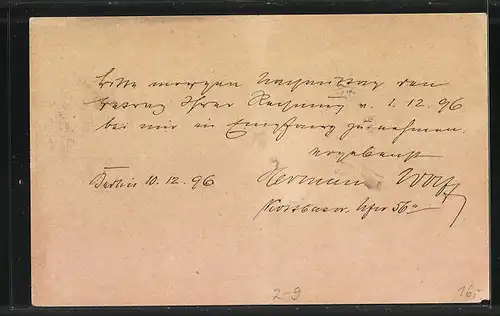 Bitte morgen Nachmittag den
Betrag Ihrer Rechnung v. 1.12.96
bei mir in Empfang zu nehmen.
ergebenst
Berlin 10.12.96
Hermann Wolff
Kottbuser Ufer 56a
2-9
16,-